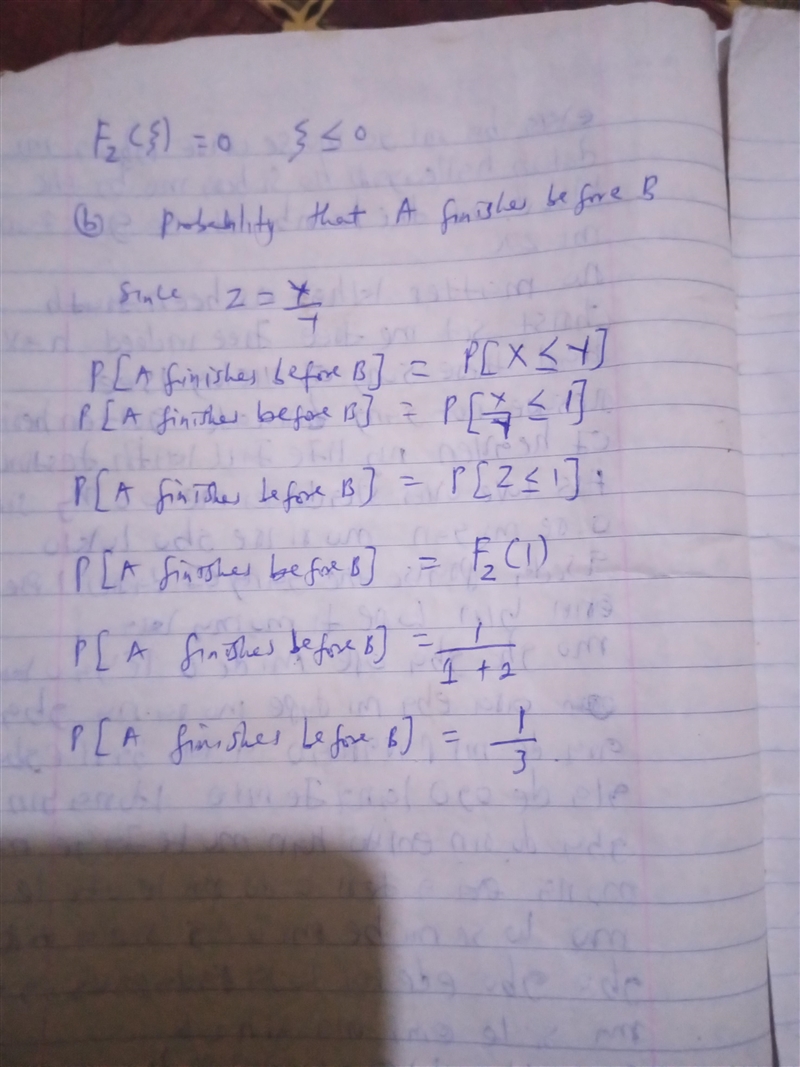 F₂(ξ) = 0 ξ ≤ 0
(b) Probability that A finishes before B
Since Z = X/Y
P[A finishes before B] = P[X ≤ Y]
P[A finishes before B] = P[X/Y ≤ 1]
P[A finishes before B] = P[Z ≤ 1].
P[A finishes before B] = F₂(1)
P[A finishes before B] = 1/(1 + 2)
P[A finishes before B] = 1/3.